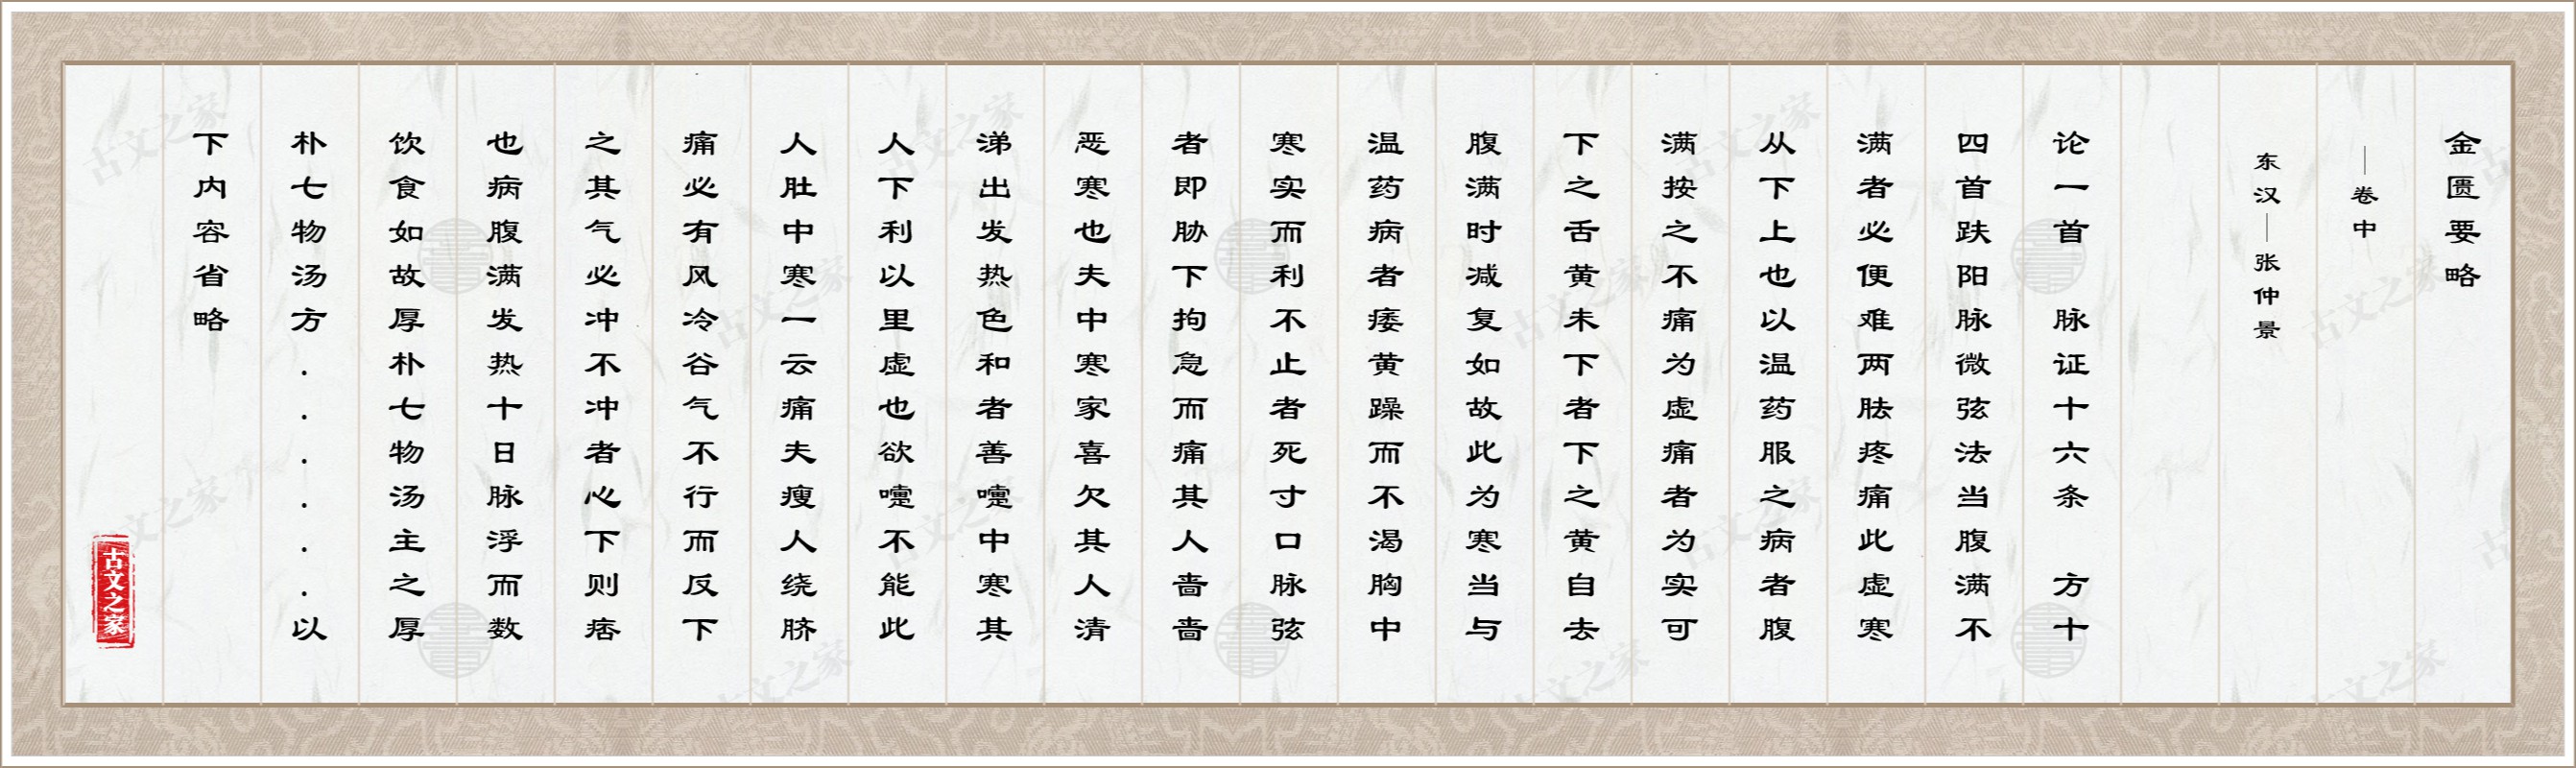 金匮要略
—卷中
东汉—张仲景
论一首　脉证十六条　方十
四首趺阳脉微弦法当腹满不
满者必便难两胠疼痛此虚寒
从下上也以温药服之病者腹
满按之不痛为虚痛者为实可
下之舌黄未下者下之黄自去
腹满时减复如故此为寒当与
温药病者痿黄躁而不渴胸中
寒实而利不止者死寸口脉弦
者即胁下拘急而痛其人啬啬
恶寒也夫中寒家喜欠其人清
涕出发热色和者善嚏中寒其
人下利以里虚也欲嚏不能此
人肚中寒一云痛夫瘦人绕脐
痛必有风冷谷气不行而反下
之其气必冲不冲者心下则痞
也病腹满发热十日脉浮而数
饮食如故厚朴七物汤主之厚
朴七物汤方......以
下内容省略
古文之家